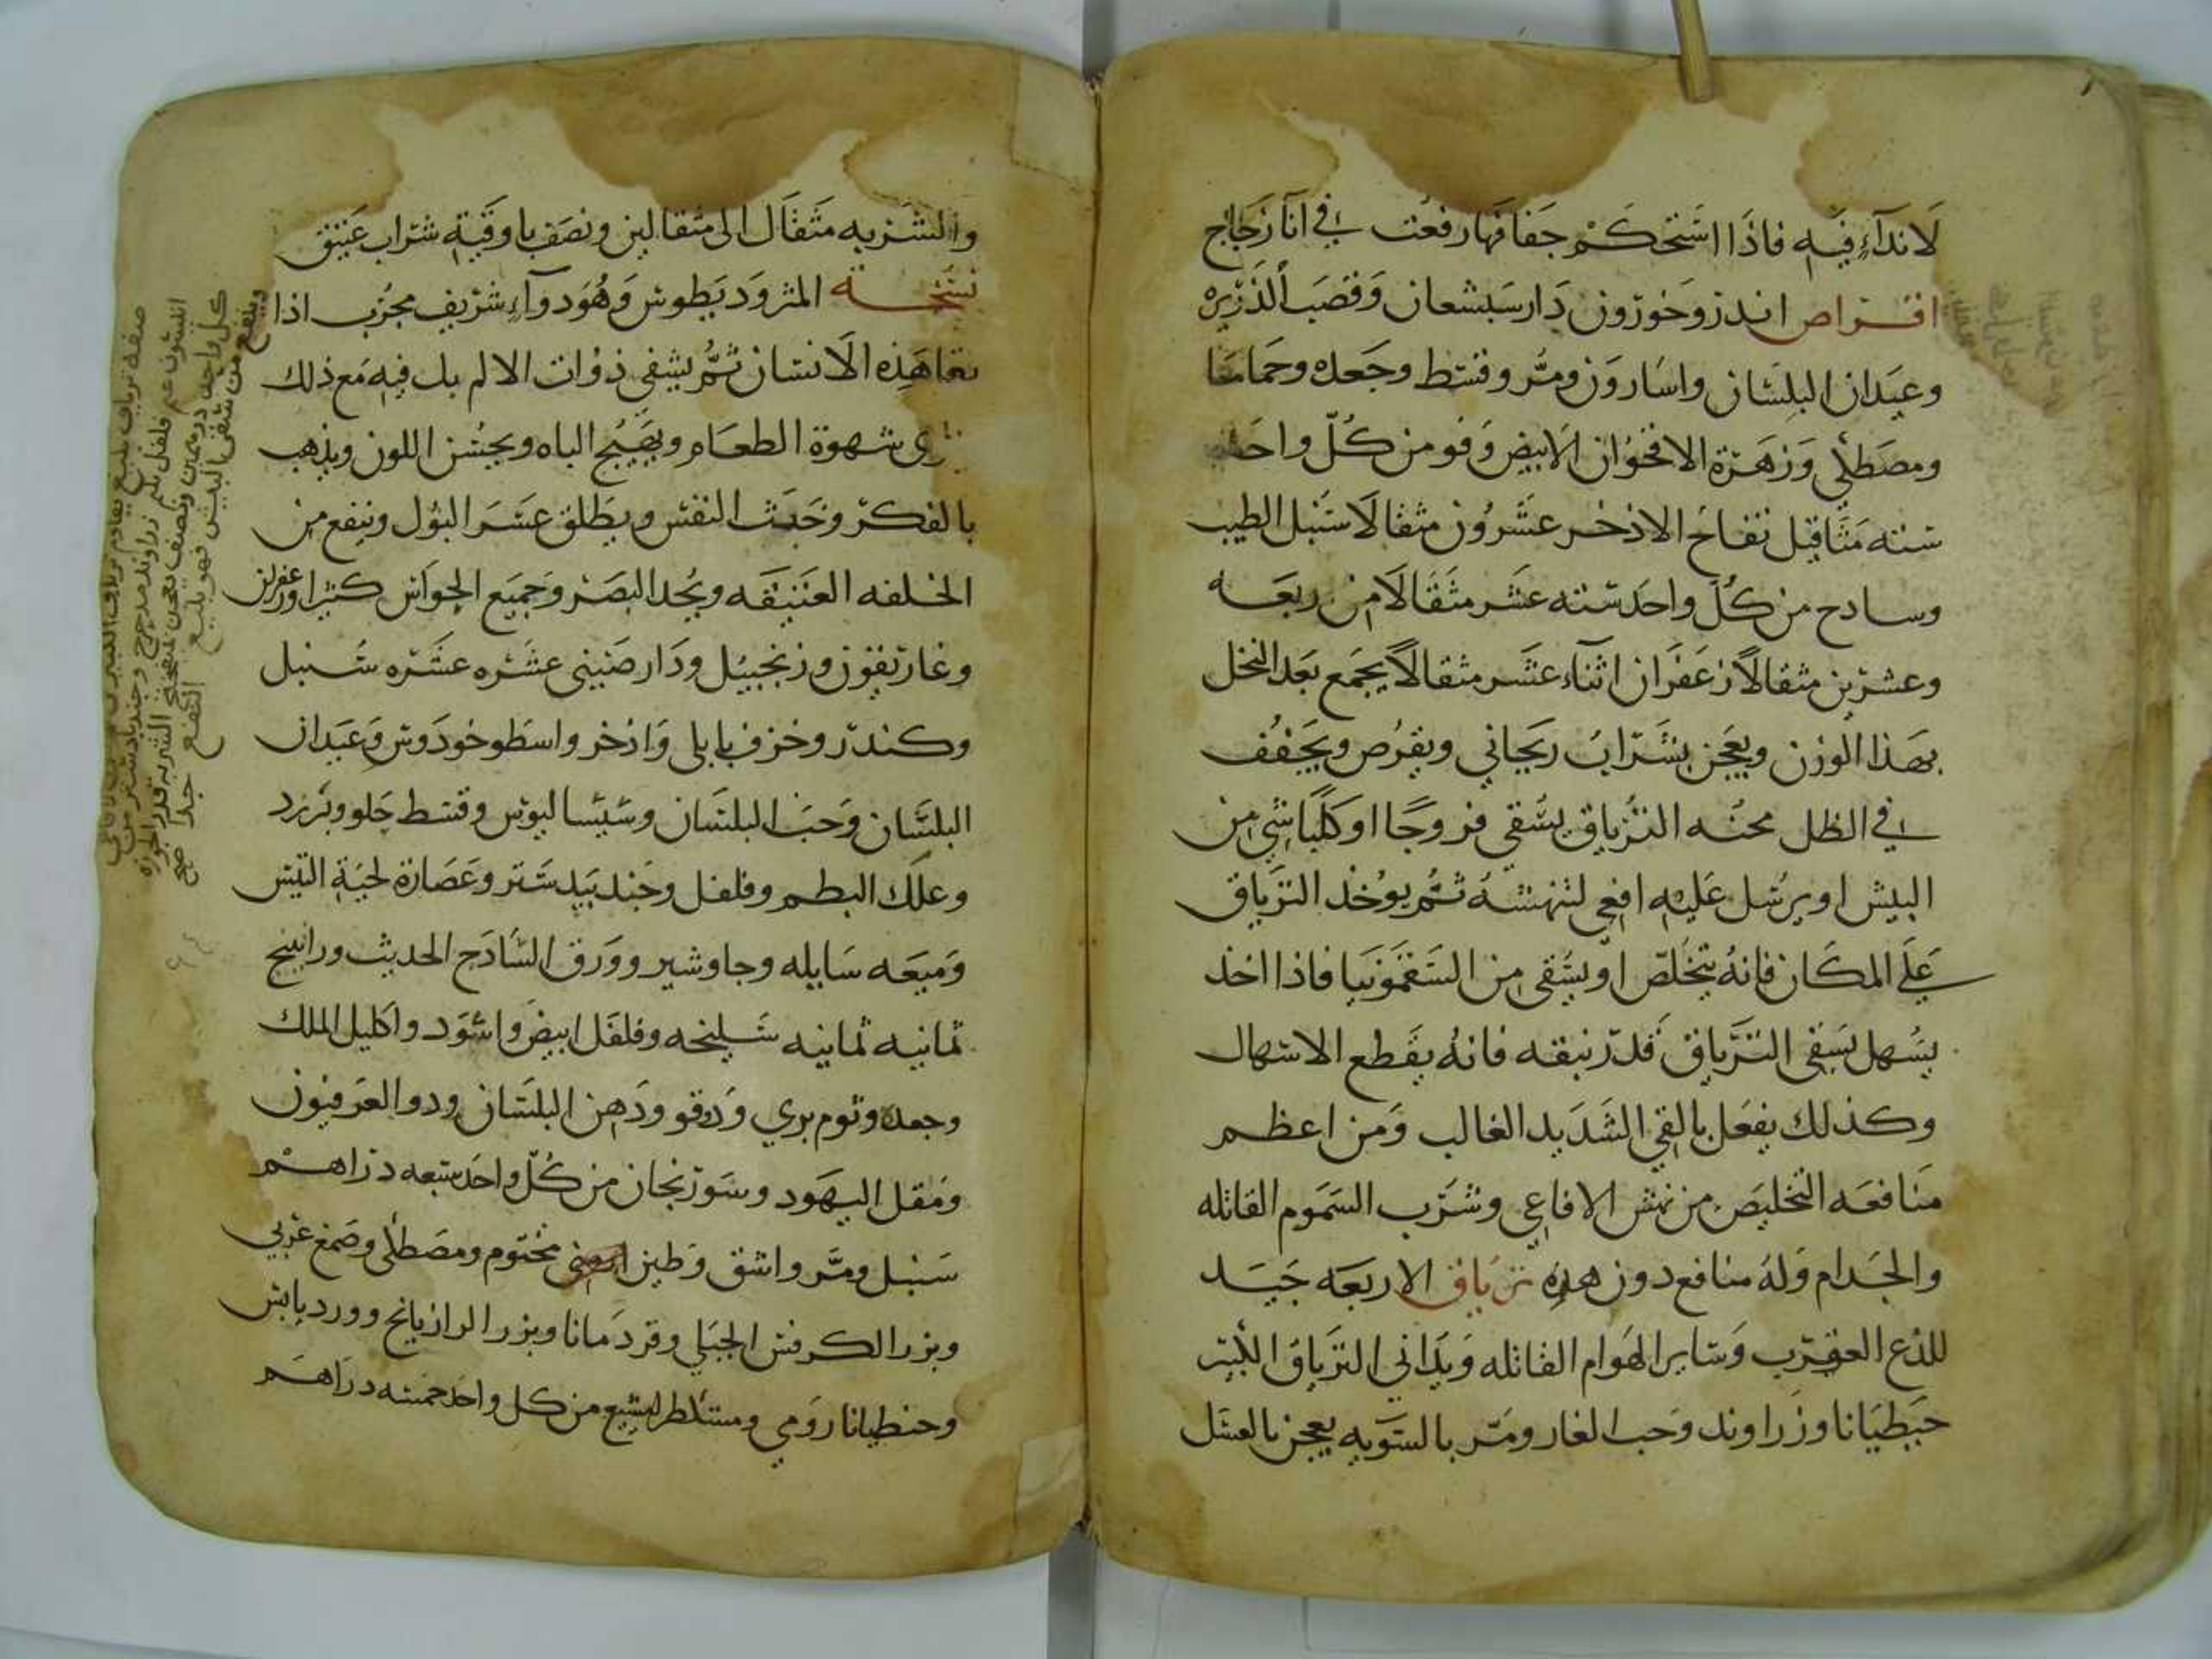 لانداء فيه فاذا استحكم جفافها رفعت في انا زجاج
اقراص اندروخورون دارسيشعان وقصب الذريره
وعيدان البلسان واسارون ومر وقسط وجعده وحماما
ومصطكي وزهرة الاقحوان الابيض وفو من كل واحد
سته مثاقيل تفاح الاذخر عشرون مثقالا سنبل الطيب
وسادج من كل واحد سته عشر مثقالا مر ربعه
وعشرين مثقالا زعفران اثناء عشر مثقالا يجمع بعد النخل
بهذا الوزن ويعجن بشراب ريحاني ويقرص ويجفف
في الظل محنه الترياق يسقى فروجا او كلبا شي من
البيش او يرسل عليه افعى لتنهشه ثم يوخذ الترياق
على المكان فانه يتخلص او يسقى من السقمونيا فاذا اخذ
يسهل يسقى الترياق قدر نبقه فانه يقطع الاسهال
وكذلك يفعل بالقي الشديد الغالب ومن اعظم
منافعه التخليص من نهش الافاعي وشرب السموم القاتله
والجدام وله منافع دون هذه ترياق الاربعه جيد
للذع العقرب وساير الهوام القاتله ويداني الترياق الكبير
جنطيانا وزراوند وحب الغار ومر بالسويه يعجن بالعسل
والشربه مثقال الى مثقالين ونصف باوقية شراب عتيق
نسخة المثروديطوس وهو دواء شريف مجرب اذا
تعاهده الانسان ثم يشفى ذوات الالم بل فيه مع ذلك
شهوة الطعام ويهيج الباه ويحسن اللون ويذهب
بالفكر وخبث النفس ويطلق عسر البول وينفع من
الخلفه العتيقه ويحد البصر وجميع الحواس كثيرا وزعفران
وغاريقون وزنجبيل ودارصيني عشره عشره سنبل
وكندر وخزف بابلي واذخر واسطوخودوس وعيدان
البلسان وحب البلسان وسيساليوس وقسط حلو وبزرد
وعلك البطم وفلفل وجندبيدستر وعصارة لحية التيس
وميعه سايله وجاوشير وورق السادج الحديث وراتينج
ثمانيه ثمانيه سليخه وفلفل ابيض واسود واكليل الملك
وجعده وثوم بري ودوقو ودهن البلسان ودوالعرفيون
ومقل اليهود وسورنجان من كل واحد سبعه دراهم
سنبل ومر واشق وطين مختوم ومصطكى وصمغ عربي
وبزر الكرفس الجبلي وقردمانا وبزر الرازيانج وورد يابس
وجنطيانا رومي ومشكطرامشيع من كل واحد خمسه دراهم
وينفع من سقى البيش فهو بليغ النفع جدا صح
كل واحد درهمين ونصف يعجن الشربه قدر الجوزه